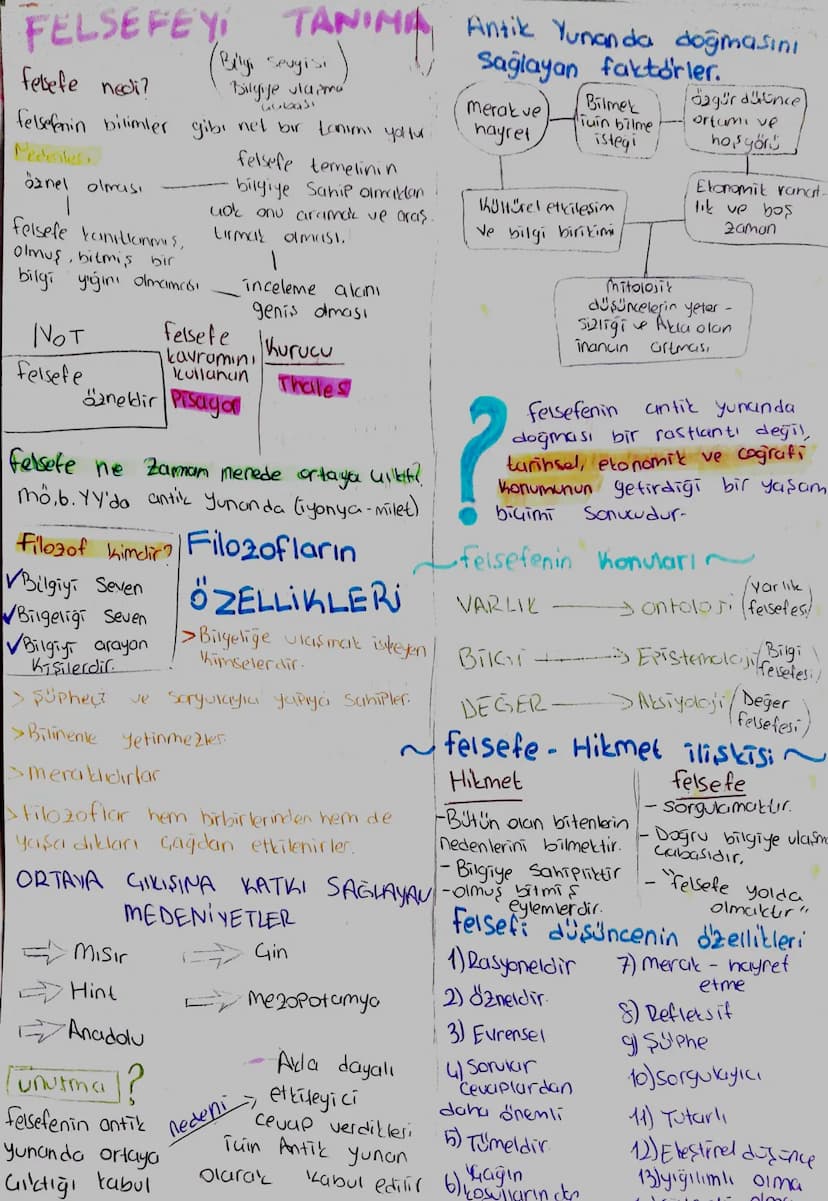 FELSEFEYİ TANIMA
Felsefe nedi?
(Bilgi sevgisi
Bilgiye ulaşma
çabası)
felsefenin bilimler gibi net bir tanımı yoktur
Nedenleri
öznel olması
felsefe temelinin
bilgiye sahip olmaktan
çok onu aramak ve araş
tırmak olması.
felsefe kanıtlanmış,
olmuş, bitmiş bir
bilgi yığını olmaması
inceleme alanı
geniş olması
NOT
felsefe
özneldir
felsefe
kavramını
kullanan
Pisagor
Kurucu
Thales
felsefe ne zaman nerede ortaya çıktı?
mö.6. YY'da antik yunanda (iyonya-milet)
Filozof kimdir?
✓Bilgiyi Seven
✓Bilgeliği Seven
✓Bilgiyi arayan
kişilerdir.
Filozofların
ÖZELLİKLERİ
>Bilgeliğe ulaşmak isteyen
kimselerdir.
> Şüpheci ve sorgulayıcı yapıya sahipler.
>Bilinenle yetinmezler.
>meraklıdırlar
>filozoflar hem birbirlerinden hem de
yaşadıkları çağdan etkilenirler.
ORTAYA ÇIKIŞINA KATKI SAĞLAYAN
MEDENİYETLER
⇒ Mısır
⇒ Hint
⇒ Anadolu
⇒ Çin
⇒ Mezopotamya
unutma ?
felsefenin antik
yunanda ortaya
çıktığı kabul
nedeni
- Akla dayalı
etkileyici
cevap verdikleri
için Antik yunan
olarak kabul edilir
Antik Yunanda doğmasını
sağlayan faktörler.
merak ve
hayret
Bilmek
için bilme
isteği
özgür düşünce
ortamı ve
hoşgörü
Kültürel etkileşim
ve bilgi birikimi
Ekonomik rahat-
lık ve boş
zaman
mitolojik
düşüncelerin yeter-
sizliği ve Akla olan
inancın artması
?
felsefenin antik yunanda
doğması bir rastlantı değil,
tarihsel, ekonomik ve coğrafi
konumunun getirdiği bir yaşam
biçimi sonucudur-
~felsefenin konuları~
VARLIK → ontoloji (varlık
felsefesi)
BİLGİ → Epistemoloji (Bilgi
felsefesi)
DEĞER → Aksiyoloji (Değer
felsefesi)
~ felsefe - Hikmet ilişkisi ~
Hikmet
-Bütün olan bitenlerin
nedenlerini bilmektir.
- Bilgiye sahipliktir
-olmuş bitmiş
eylemlerdir.
felsefe
- sorgulamaktır.
- Doğru bilgiye ulaşma
çabasıdır.
- "felsefe yolda
olmaktır"
felsefi düşüncenin özellikleri
1) Rasyoneldir
2) Özneldir.
3) Evrensel
4) Sorular
cevaplardan
daha önemli
5) Tümeldir.
6) Çağın
koşullarından
7) merak - hayret
etme
8) Refleksif
9) Şüphe
10) sorgulayıcı
11) Tutarlı
12) Eleştirel düşünce
13) yığılımlı olma